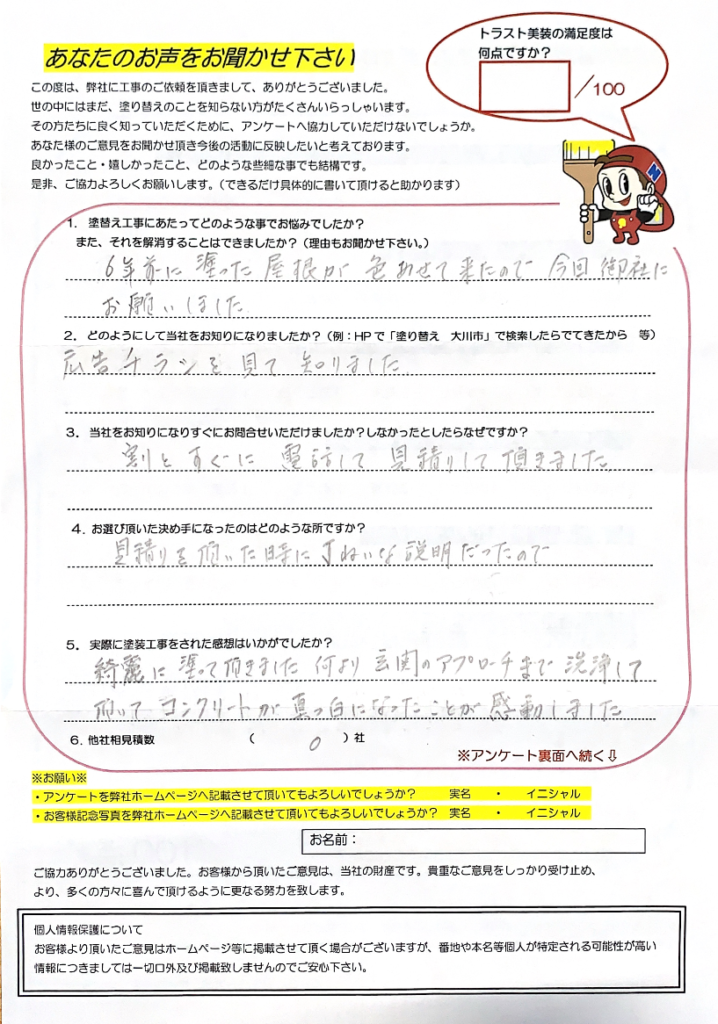 あなたのお声をお聞かせ下さい
トラスト美装の満足度は
何点ですか？
／100
この度は、弊社に工事のご依頼を頂きまして、ありがとうございました。
世の中にはまだ、塗り替えのことを知らない方がたくさんいらっしゃいます。
その方たちに良く知っていただくために、アンケートへ協力していただけないでしょうか。
あなた様のご意見をお聞かせ頂き今後の活動に反映したいと考えております。
良かったこと・嬉しかったこと、どのような些細な事でも結構です。
是非、ご協力よろしくお願いします。（できるだけ具体的に書いて頂けると助かります）
N
1． 塗替え工事にあたってどのような事でお悩みでしたか？
また、それを解消することはできましたか？（理由もお聞かせ下さい。）
6年前に塗った屋根が色あせて来たので今回御社に
お願いしました
2．どのようにして当社をお知りになりましたか？（例：HPで「塗り替え 大川市」で検索したらでてきたから 等）
広告チラシを見て知りました
3．当社をお知りになりすぐにお問合せいただけましたか？しなかったとしたらなぜですか？
割とすぐに電話して見積りして頂きました
4．お選び頂いた決め手になったのはどのような所ですか？
見積りを頂いた時に丁ねいな説明だったので
5．実際に塗装工事をされた感想はいかがでしたか？
綺麗に塗って頂きました何より玄関のアプローチまで洗浄して
頂いてコンクリートが真っ白になったことが感動しました
6．他社相見積数 （ 0 ）社
※アンケート裏面へ続く⇩
※お願い※
・アンケートを弊社ホームページへ記載させて頂いてもよろしいでしょうか？ 実名 ・ イニシャル
・お客様記念写真を弊社ホームページへ記載させて頂いてもよろしいでしょうか？ 実名 ・ イニシャル
お名前：
ご協力ありがとうございました。お客様から頂いたご意見は、当社の財産です。貴重なご意見をしっかり受け止め、
より、多くの方々に喜んで頂けるように更なる努力を致します。
個人情報保護について
お客様より頂いたご意見はホームページ等に掲載させて頂く場合がございますが、番地や本名等個人が特定される可能性が高い
情報につきましては一切口外及び掲載致しませんのでご安心下さい。